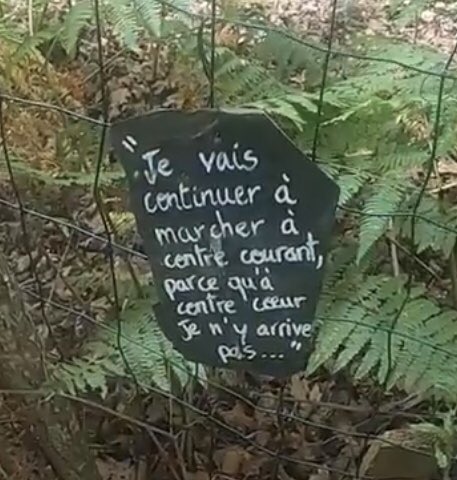 "Je vais
continuer à
marcher à
contre courant,
parce qu'à
contre cœur
Je n'y arrive
pas..."